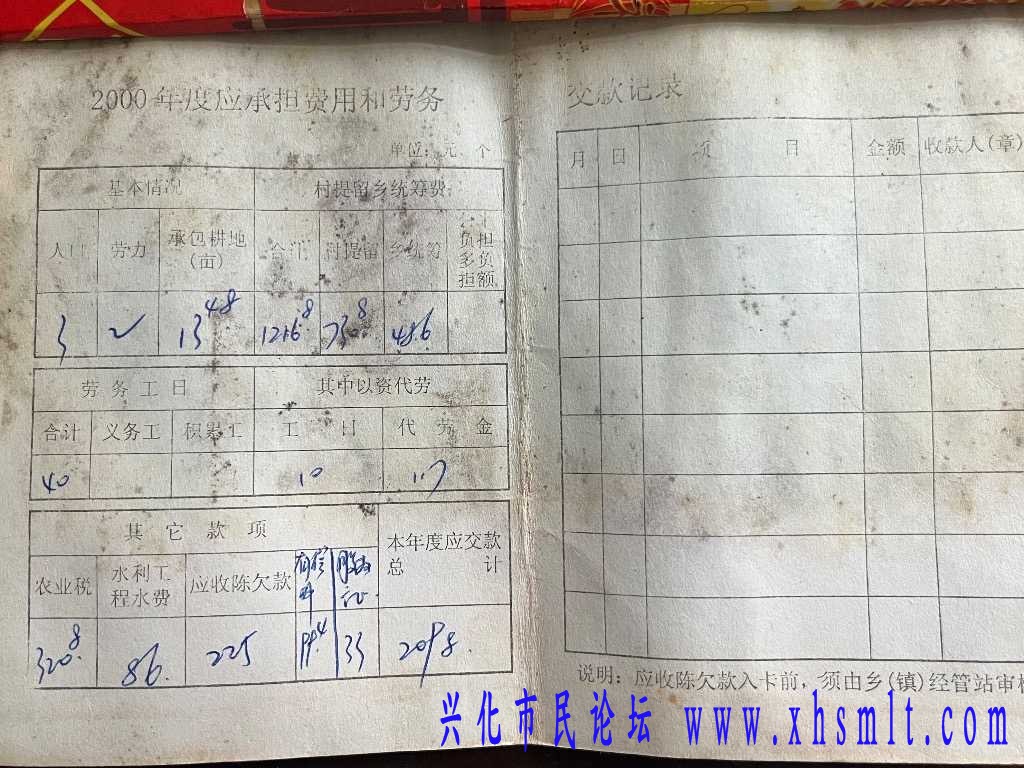 2000年度应承担费用和劳务
单位：元、个
基本情况 村提留乡统筹费
人口 劳力 承包耕地(亩) 合计 村提留 乡统筹 负担多负担额
3 2 13.48 1216.8 730.8 486
劳务工日 其中以资代劳
合计 义务工 积累工 工日 代劳金
40 10 117
其它款项 本年度应交款总计
农业税 水利工程水费 应收陈欠款
320.8 86 225 33 2098
交款记录
月 日 项目 金额 收款人(章)
说明：应收陈欠款入卡前，须由乡(镇)经管站审
兴化市民论坛 www.xhsmlt.com